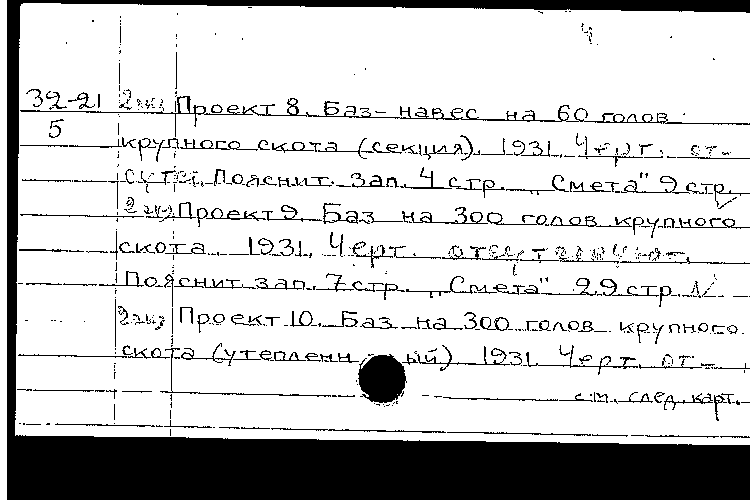 4
32-21 2 экз Проект 8. Баз-навес на 60 голов
5 крупного скота (секция). 1931. Черт. от-
сутст. Пояснит. зап. 4 стр. „Смета" 9 стр.
2 экз Проект 9. Баз на 300 голов крупного
скота. 1931. Черт. отсутствуют.
Пояснит зап. 7 стр. „Смета" 29 стр
2 экз Проект 10. Баз на 300 голов крупного
скота (утепленн ый) 1931. Черт. от-
см. след. карт.